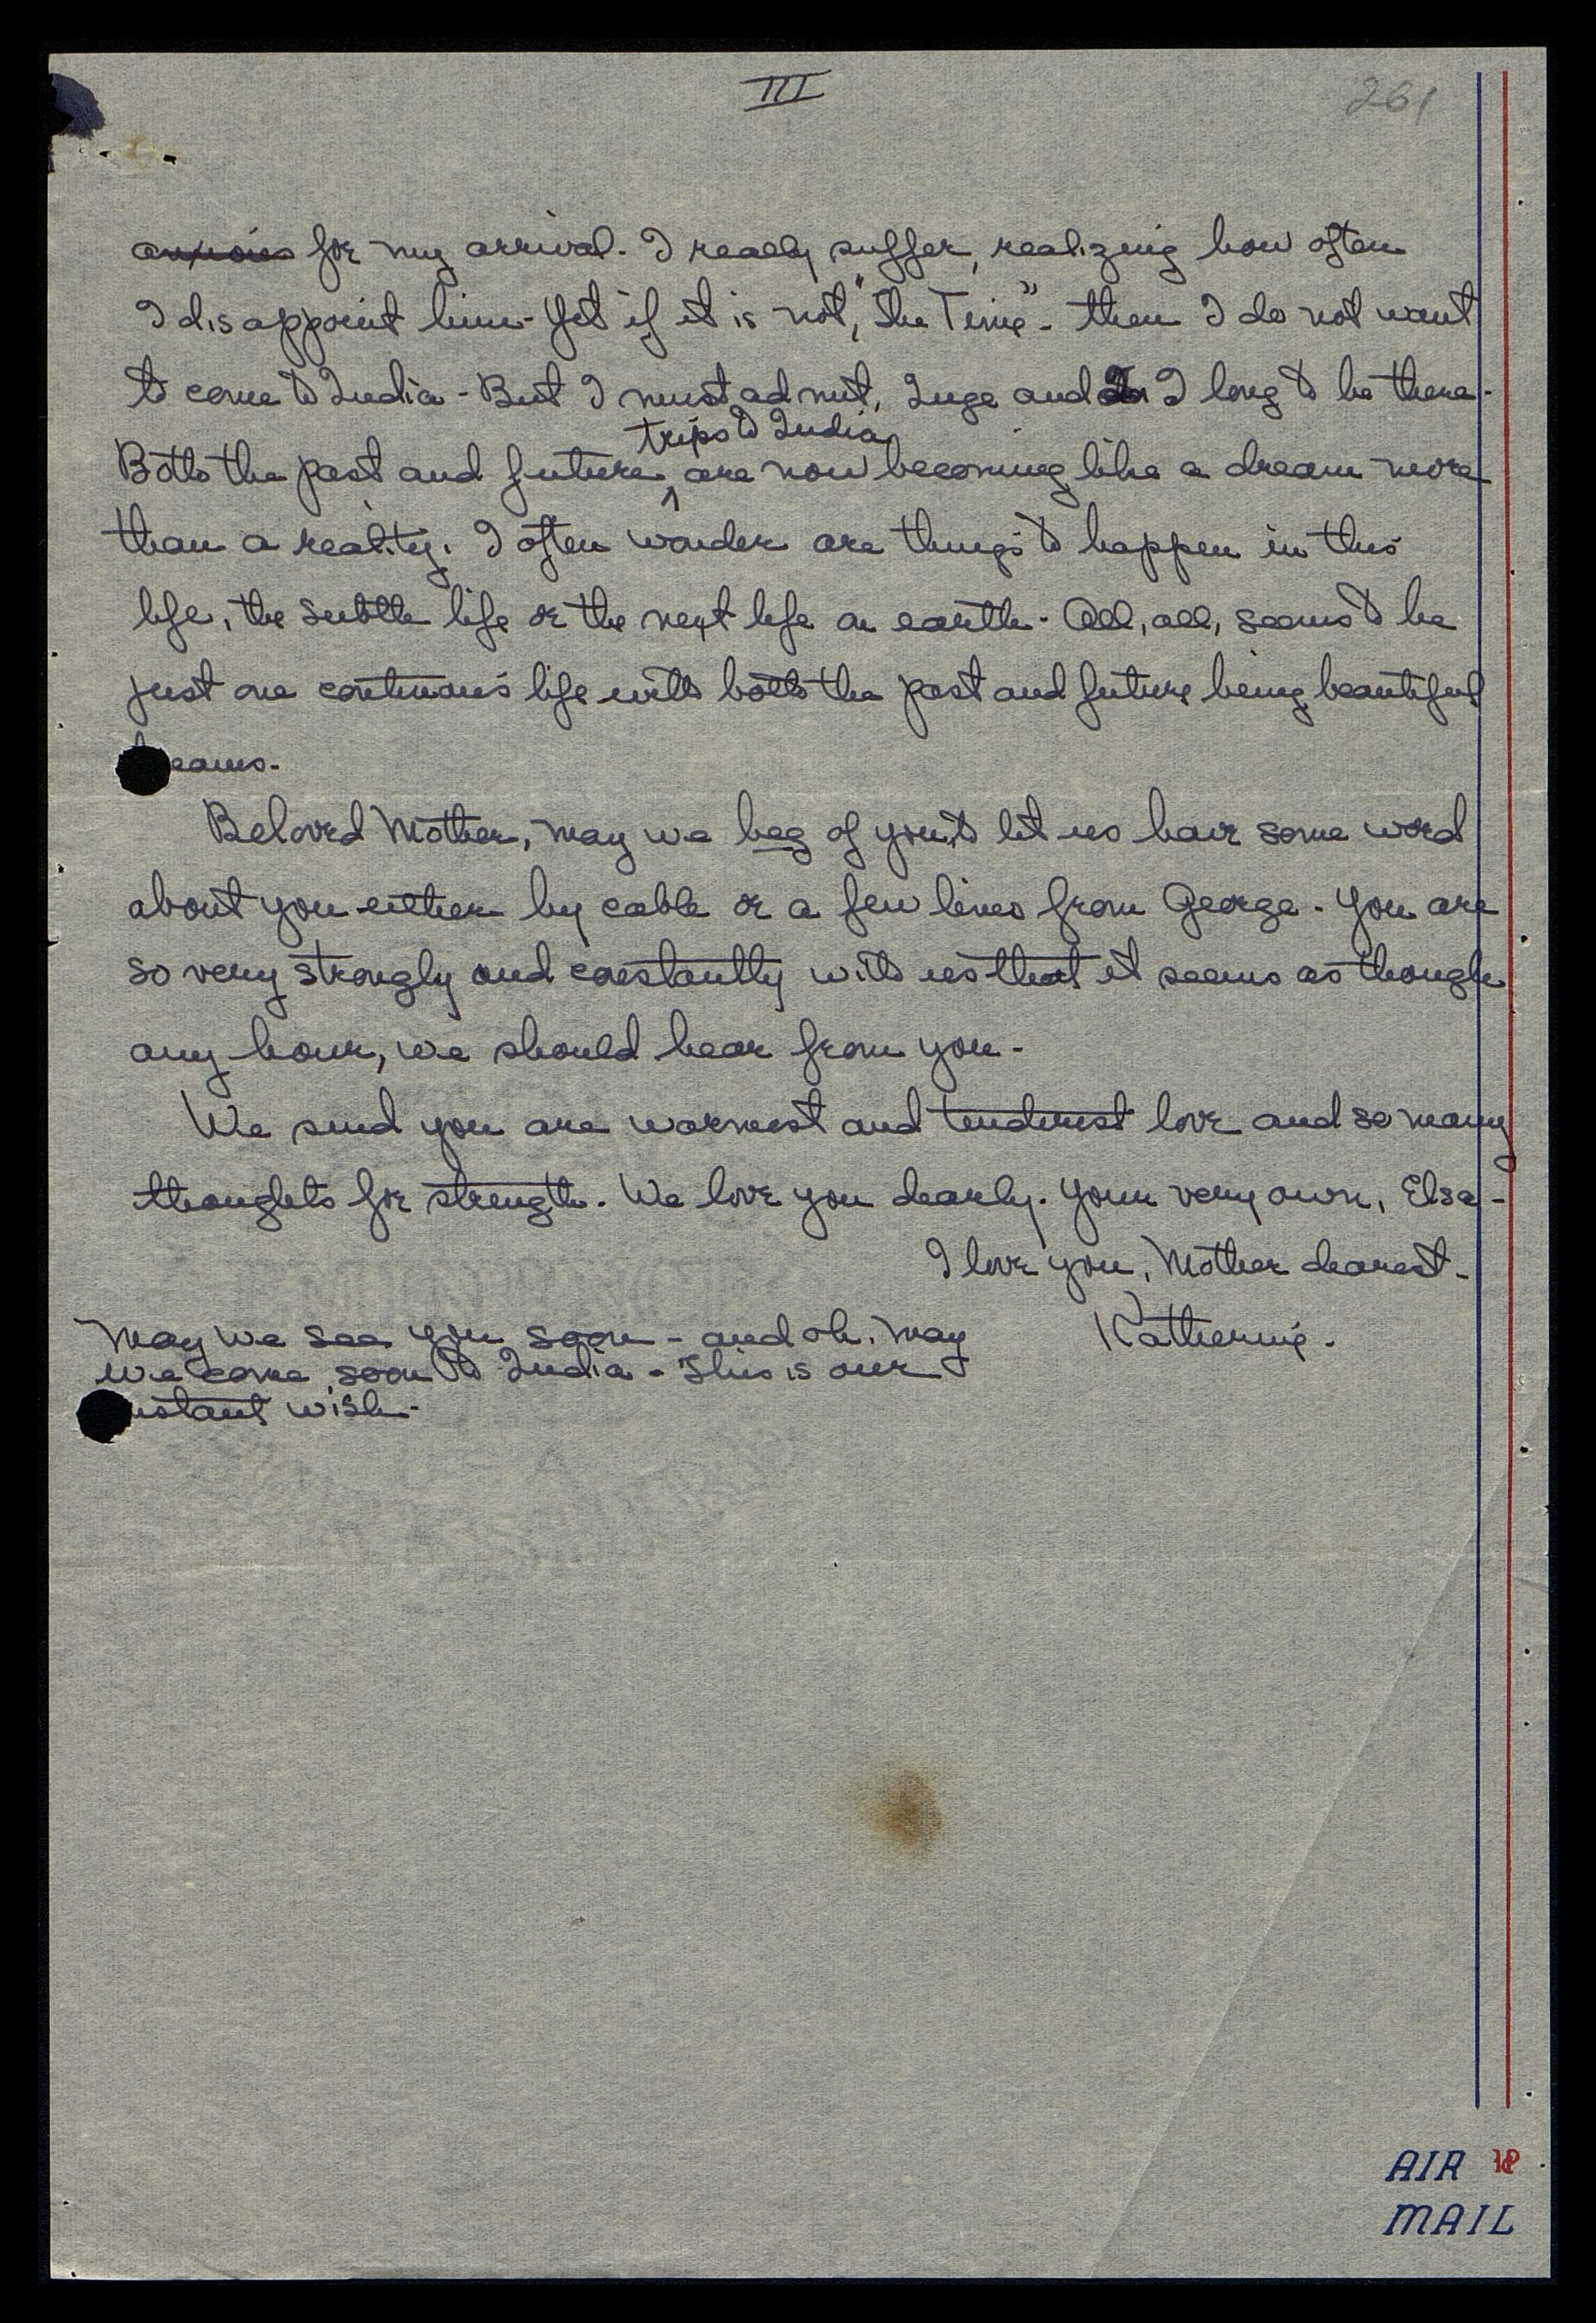 III
261
anxious for my arrival. I really suffer, realizing how often
I disappoint him - Yet if it is not, "The Time" - then I do not want
to come to India - But I must admit, Inge and I long to be there -
trips to India
Both the past and future ^ are now becoming like a dream more
than a reality. I often wonder are things to happen in this
life, the subtle life or the next life on earth. All, all, seems to be
just one continous life with both the past and future being beautiful
eams.
Beloved Mother, may we beg of you, to let us have some word
about you either by cable or a few lines from George. You are
so very strongly and constantly with us that it seems as though
any hour, we should hear from you -
We send you are warmest and tenderest love and so many
thoughts for strength. We love you dearly. Your very own, Elsa -
I love you, Mother dearest -
Katherine.
May we see you soon - and oh, may
we come soon to India - This is our
nstant wish -
AIR
MAIL